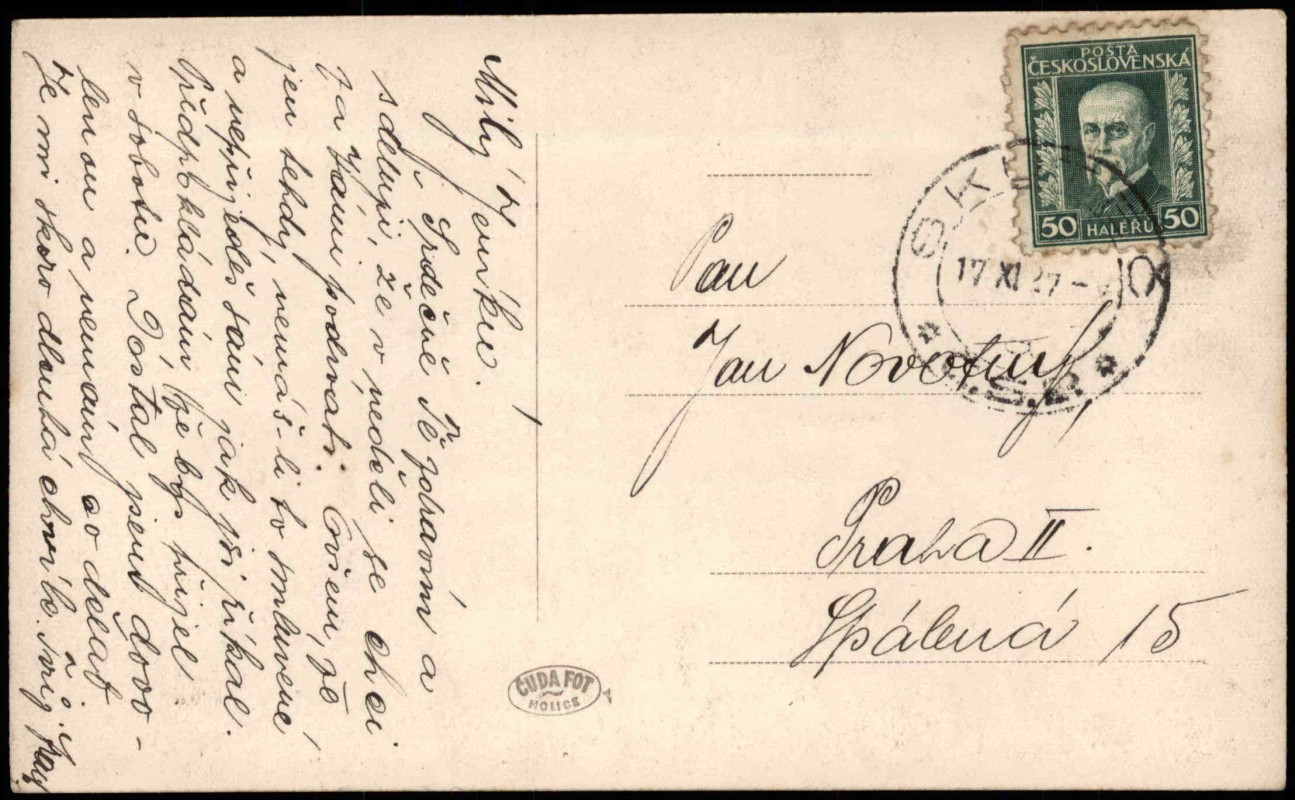 Milý Jeníku.
Srdečně Tě zdravím a
sděluji, že v neděli se chci
za Vámi podívati. Ovšem, že
jen tehdy, nemáš-li to smluvené
a nepřijedeš sám jak jsi říkal.
Předpokládám, že bys přijel
v sobotu. Dostal jsem dovo-
lenou a nemám co dělat
že mi skoro dlouhá chvíle.
POŠTA
ČESKOSLOVENSKÁ
50 HALÉŘŮ 50
17 XI 37
Pan
Jan Novotný
Praha II.
Spálená 15
ČUDA FOT
HOLICE